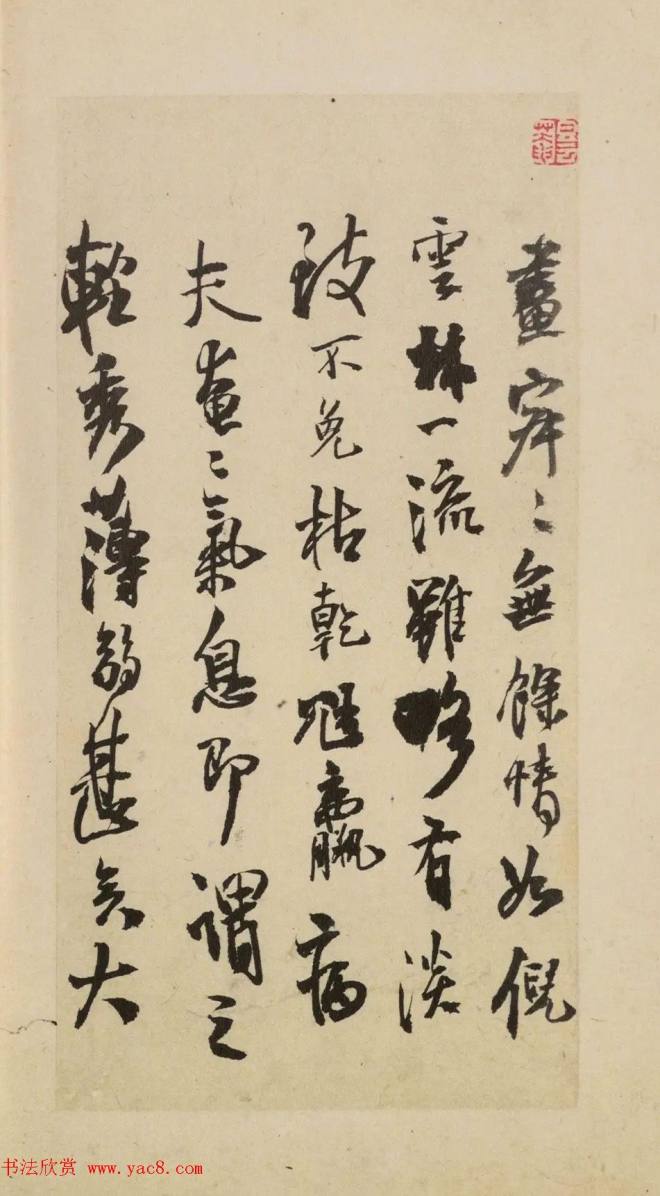 畫寂〻無餘情如倪
雲林一流雖略有淡
致不免枯乾尪羸病
夫奄〻氣息即謂之
輕秀薄弱甚矣大
书法欣赏 www.yac8.com